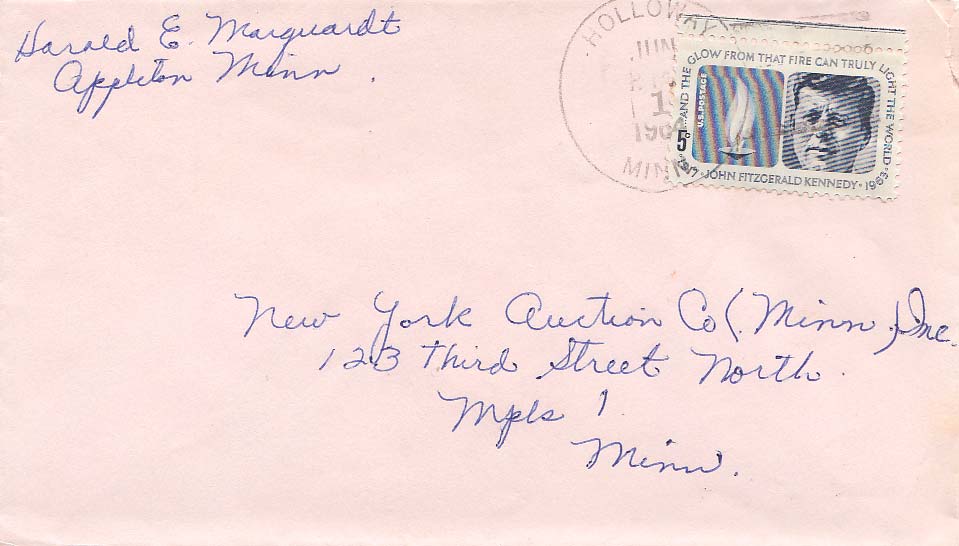 Harald E. Marquardt
Appleton Minn.
HOLLOWAY
JUN
1
196
MINN
...AND THE GLOW FROM THAT FIRE CAN TRULY LIGHT THE WORLD
U.S. POSTAGE
5¢
1917 · JOHN FITZGERALD KENNEDY · 1963
New York Auction Co (Minn.) Inc.
123 Third Street North.
Mpls 1
Minn.